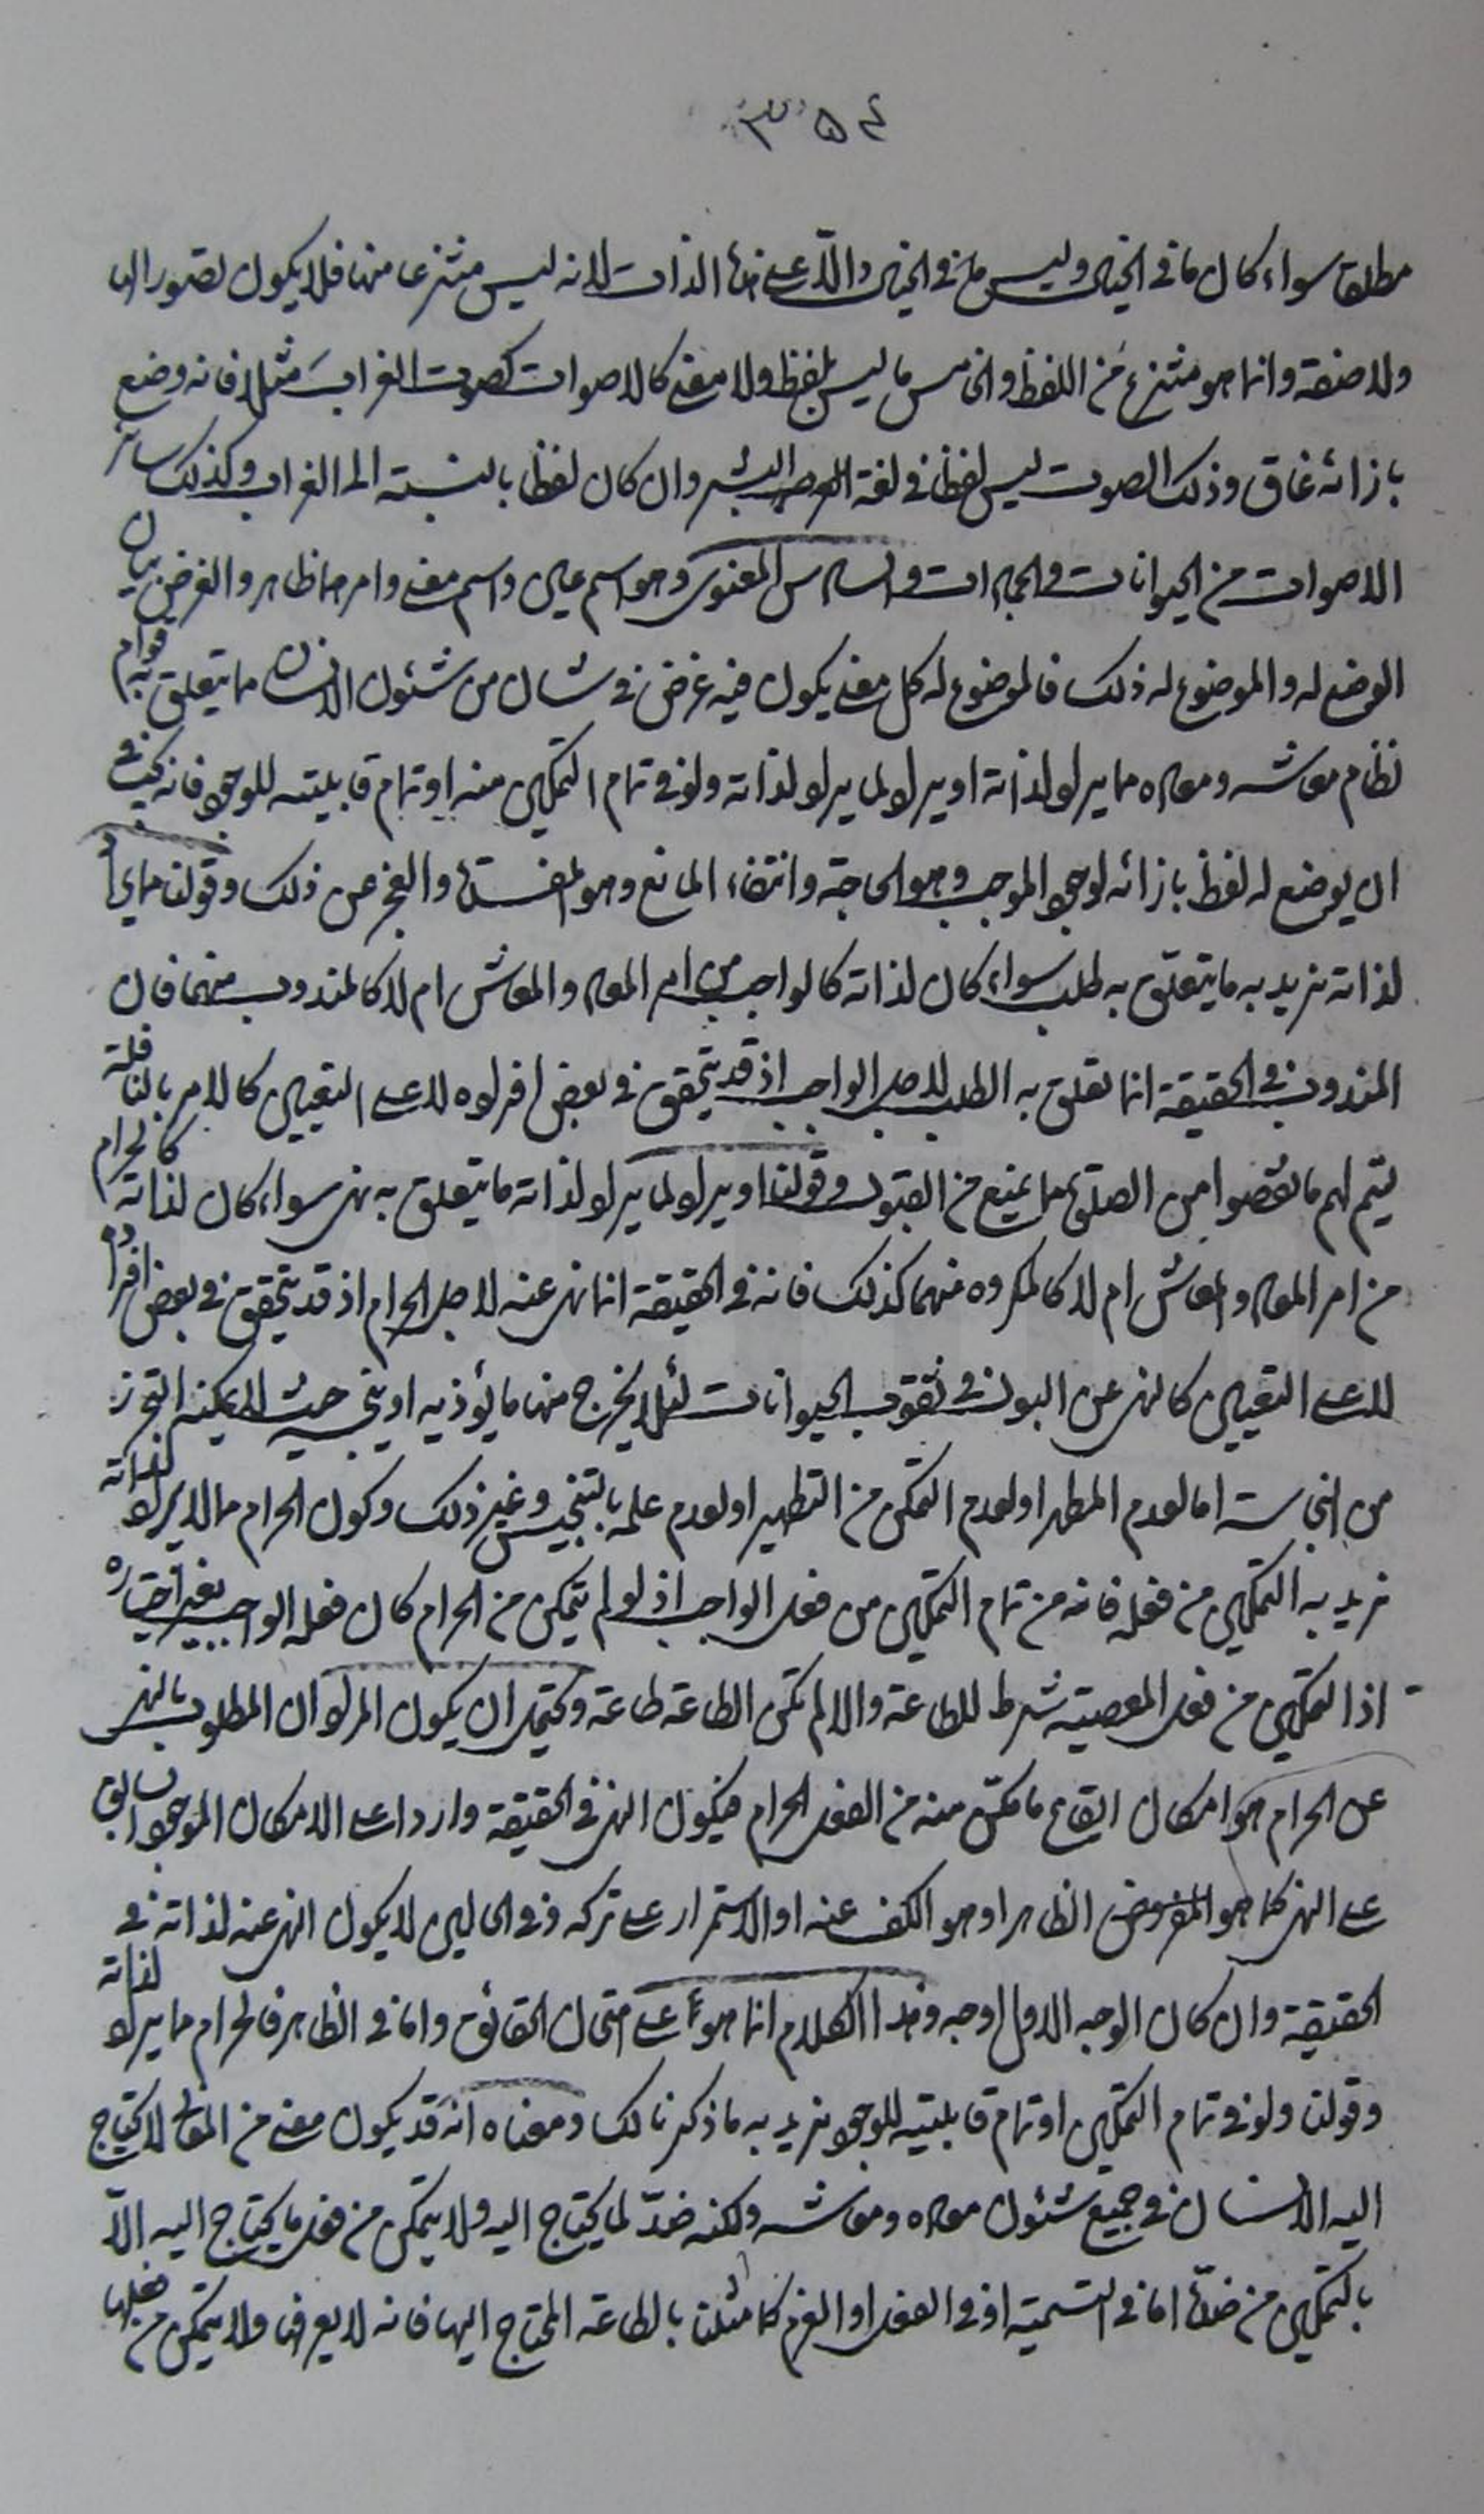 ٣٥٤
مطلقا سواء كان ما في الخيال وليس ما في الخيال دالّا على هذا الذات لانه ليس منتزعا منها فلا يكون لصورتها
ولا صفته وانما هو منتزع من اللفظ والخامس ما ليس بلفظ ولا معنى كالاصوات كصوت الغراب مثلا فانه وضع
بازائه غاق وذلك الصوت ليس لفظا في لغة البشر وان كان لفظا بالنسبة الى الغراب وكذلك سائر
الاصوات من الحيوانات والجمادات والسادس المعنوى وهو اسم عين واسم معنى وامرهما ظاهر والغرض بيان
الوضع له والموضوع له ذلك فالموضوع له كل معنى يكون فيه غرض في شان من شئون الانسان مما يتعلق به قوام
نظام معاشه ومعاده مما يراد لذاته او يراد لما يراد لذاته ولو في تمام التمكين منه او تمام قابليته للوجود فانه يجب في
ان يوضع له لفظ بازائه لوجود الموجب وهو الحاجة وانتفاء المانع وهو المفسدة والعجز عن ذلك وقولنا مما يراد
لذاته نريد به ما يتعلّق به طلب سواء كان لذاته كالواجب من امر المعاد والمعاش ام لا كالمندوب منهما فان
المندوب في الحقيقة انما تعلق به الطلب لاجل الواجب اذ قد يتحقق في بعض افراده لا على التعيين كالامر بالنافلة
ليتم لهم ما نقصوا من الصلوة مما يمنع من القبول وقولنا او يراد لما يراد لذاته ما يتعلق به نهى سواء كان لذاته كالحرام
من امر المعاد والمعاش ام لا كالمكروه منهما كذلك فانه في الحقيقة انما نهى عنه لاجل الحرام اذ قد يتحقق في بعض افراده
لا على التعيين كالنهى عن البول في ثقوب الحيوانات لئلا يخرج منها ما يؤذيه او ينجسه حيث لا يمكنه التحرز
من النجاسة اما لعدم المطهر او لعدم التمكن من التطهير او لعدم علمه بالتنجيس وغير ذلك وكون الحرام مما لا يراد لذاته
نريد به التمكين من فعله فانه من تمام التمكين من فعل الواجب اذ لو لم يتمكن من الحرام كان فعله الواجب بغير اختياره
اذ التمكين من فعل المعصية شرط للطاعة والا لم تكن الطاعة طاعة ويحتمل ان يكون المراد ان المطلوب بالنهى
عن الحرام هو امكان ايقاع ما مكّن منه من الفعل الحرام فيكون النهى في الحقيقة واردا على الامكان الموجود السابق
على النهى كما هو المفروض الظاهر او هو الكف عنه او الاستمرار على تركه وفي الحالين لا يكون النهى عنه لذاته في
الحقيقة وان كان الوجه الاول اوجه وهذا الكلام انما هو على امتحان الحقائق واما في الظاهر فالحرام مما يراد لذاته
وقولنا ولو في تمام التمكين او تمام قابليته للوجود نريد به ما ذكرنا لك ومعناه انه قد يكون معنى من المعانى لا يحتاج
اليه الانسان في جميع شئون معاده ومعاشه ولكنه ضدّ لما يحتاج اليه ولا يتمكن من فعل ما يحتاج اليه الّا
بالتمكين من ضدّه اما في التسمية او في الفعل او العزم كما مثلنا بالطاعة المحتاج اليها فانه لا يعرفها ولا يتمكن من فعلها